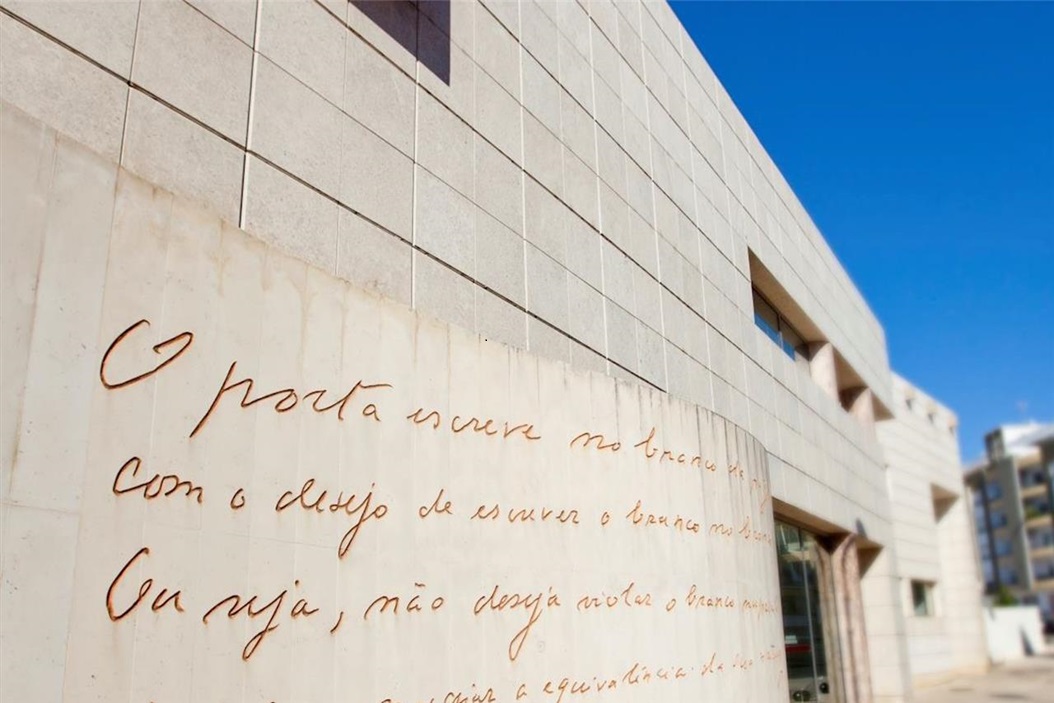 O poeta escreve no branco da
com o desejo de escrever o branco no branco
Ou seja, não deseja violar o branco
criar a equivalência da sua